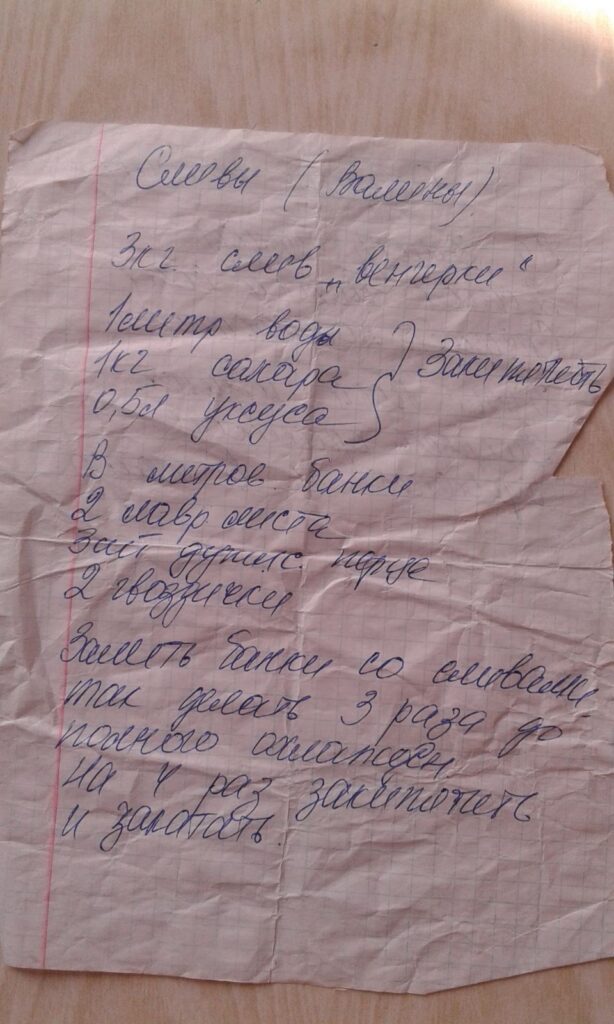 Сливы (Валины)
3кг. слив „венгерки“
1литр воды
1кг сахара } Закипятить
0,5л уксуса
В литров. банки
2 лавр листа
3шт душис. перца
2 гвоздички
Залить банки со сливами
так делать 3 раза до
полного охлажден.
На 4 раз закипятить
и закатать.